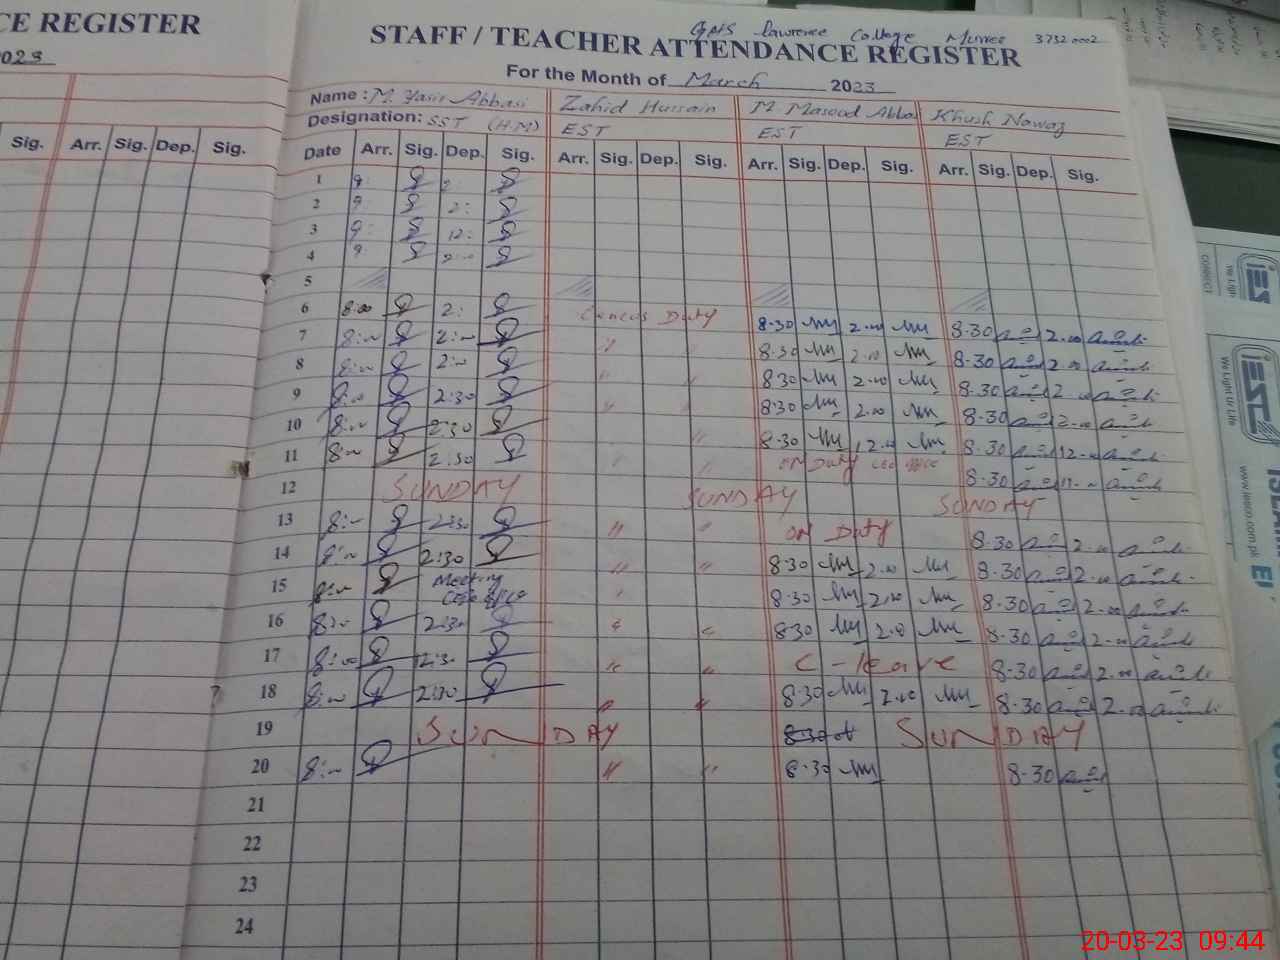 CE REGISTER
023
Sig. Arr. Sig. Dep. Sig.
GHS Lawrence College Murree 37320002
STAFF / TEACHER ATTENDANCE REGISTER
For the Month of March 2023
Name : M. Yasir Abbasi Zahid Hussain M. Masood Abba Khush Nawaz
Designation: SST (H.M) EST EST EST
Date Arr. Sig. Dep. Sig. Arr. Sig. Dep. Sig. Arr. Sig. Dep. Sig. Arr. Sig. Dep. Sig.
1 9:
2 9: 2:
3 9: 12:
4 9
5
6 8:00 2: Cencus Duty 8.30 2.00 8.30 2.00
7 8:00 2:00 " " 8.30 2.00 8.30 2.00
8 8:00 2:00 " " 8.30 2.00 8.30 2.00
9 8:00 2:30 " " 8.30 2.00 8.30 2.00
10 8:00 2:30 " " 8.30 12.00 8.30 12.00
11 8:00 2:30 " " ON Duty CEO office 8.30
12 SUNDAY SUNDAY SUNDAY
13 8:00 2:30 " " ON Duty 8.30 2.00
14 8:00 2:30 " " 8.30 2.00 8.30 2.00
15 8:00 Meeting " 8.30 2.00 8.30 2.00
16 8:00 2:30 " " 8.30 2.00 8.30 2.00
17 8:00 12:30 " " C-leave 8.30 2.00
18 8:00 2:30 " " 8.30 2.00 8.30 2.00
19 SUNDAY SUNDAY
20 8:00 " " 8.30 8.30
21
22
23
24
CONNECT
We Light
IESC
We Light Ur Life
www.iesco.com.pk
20-03-23 09:44